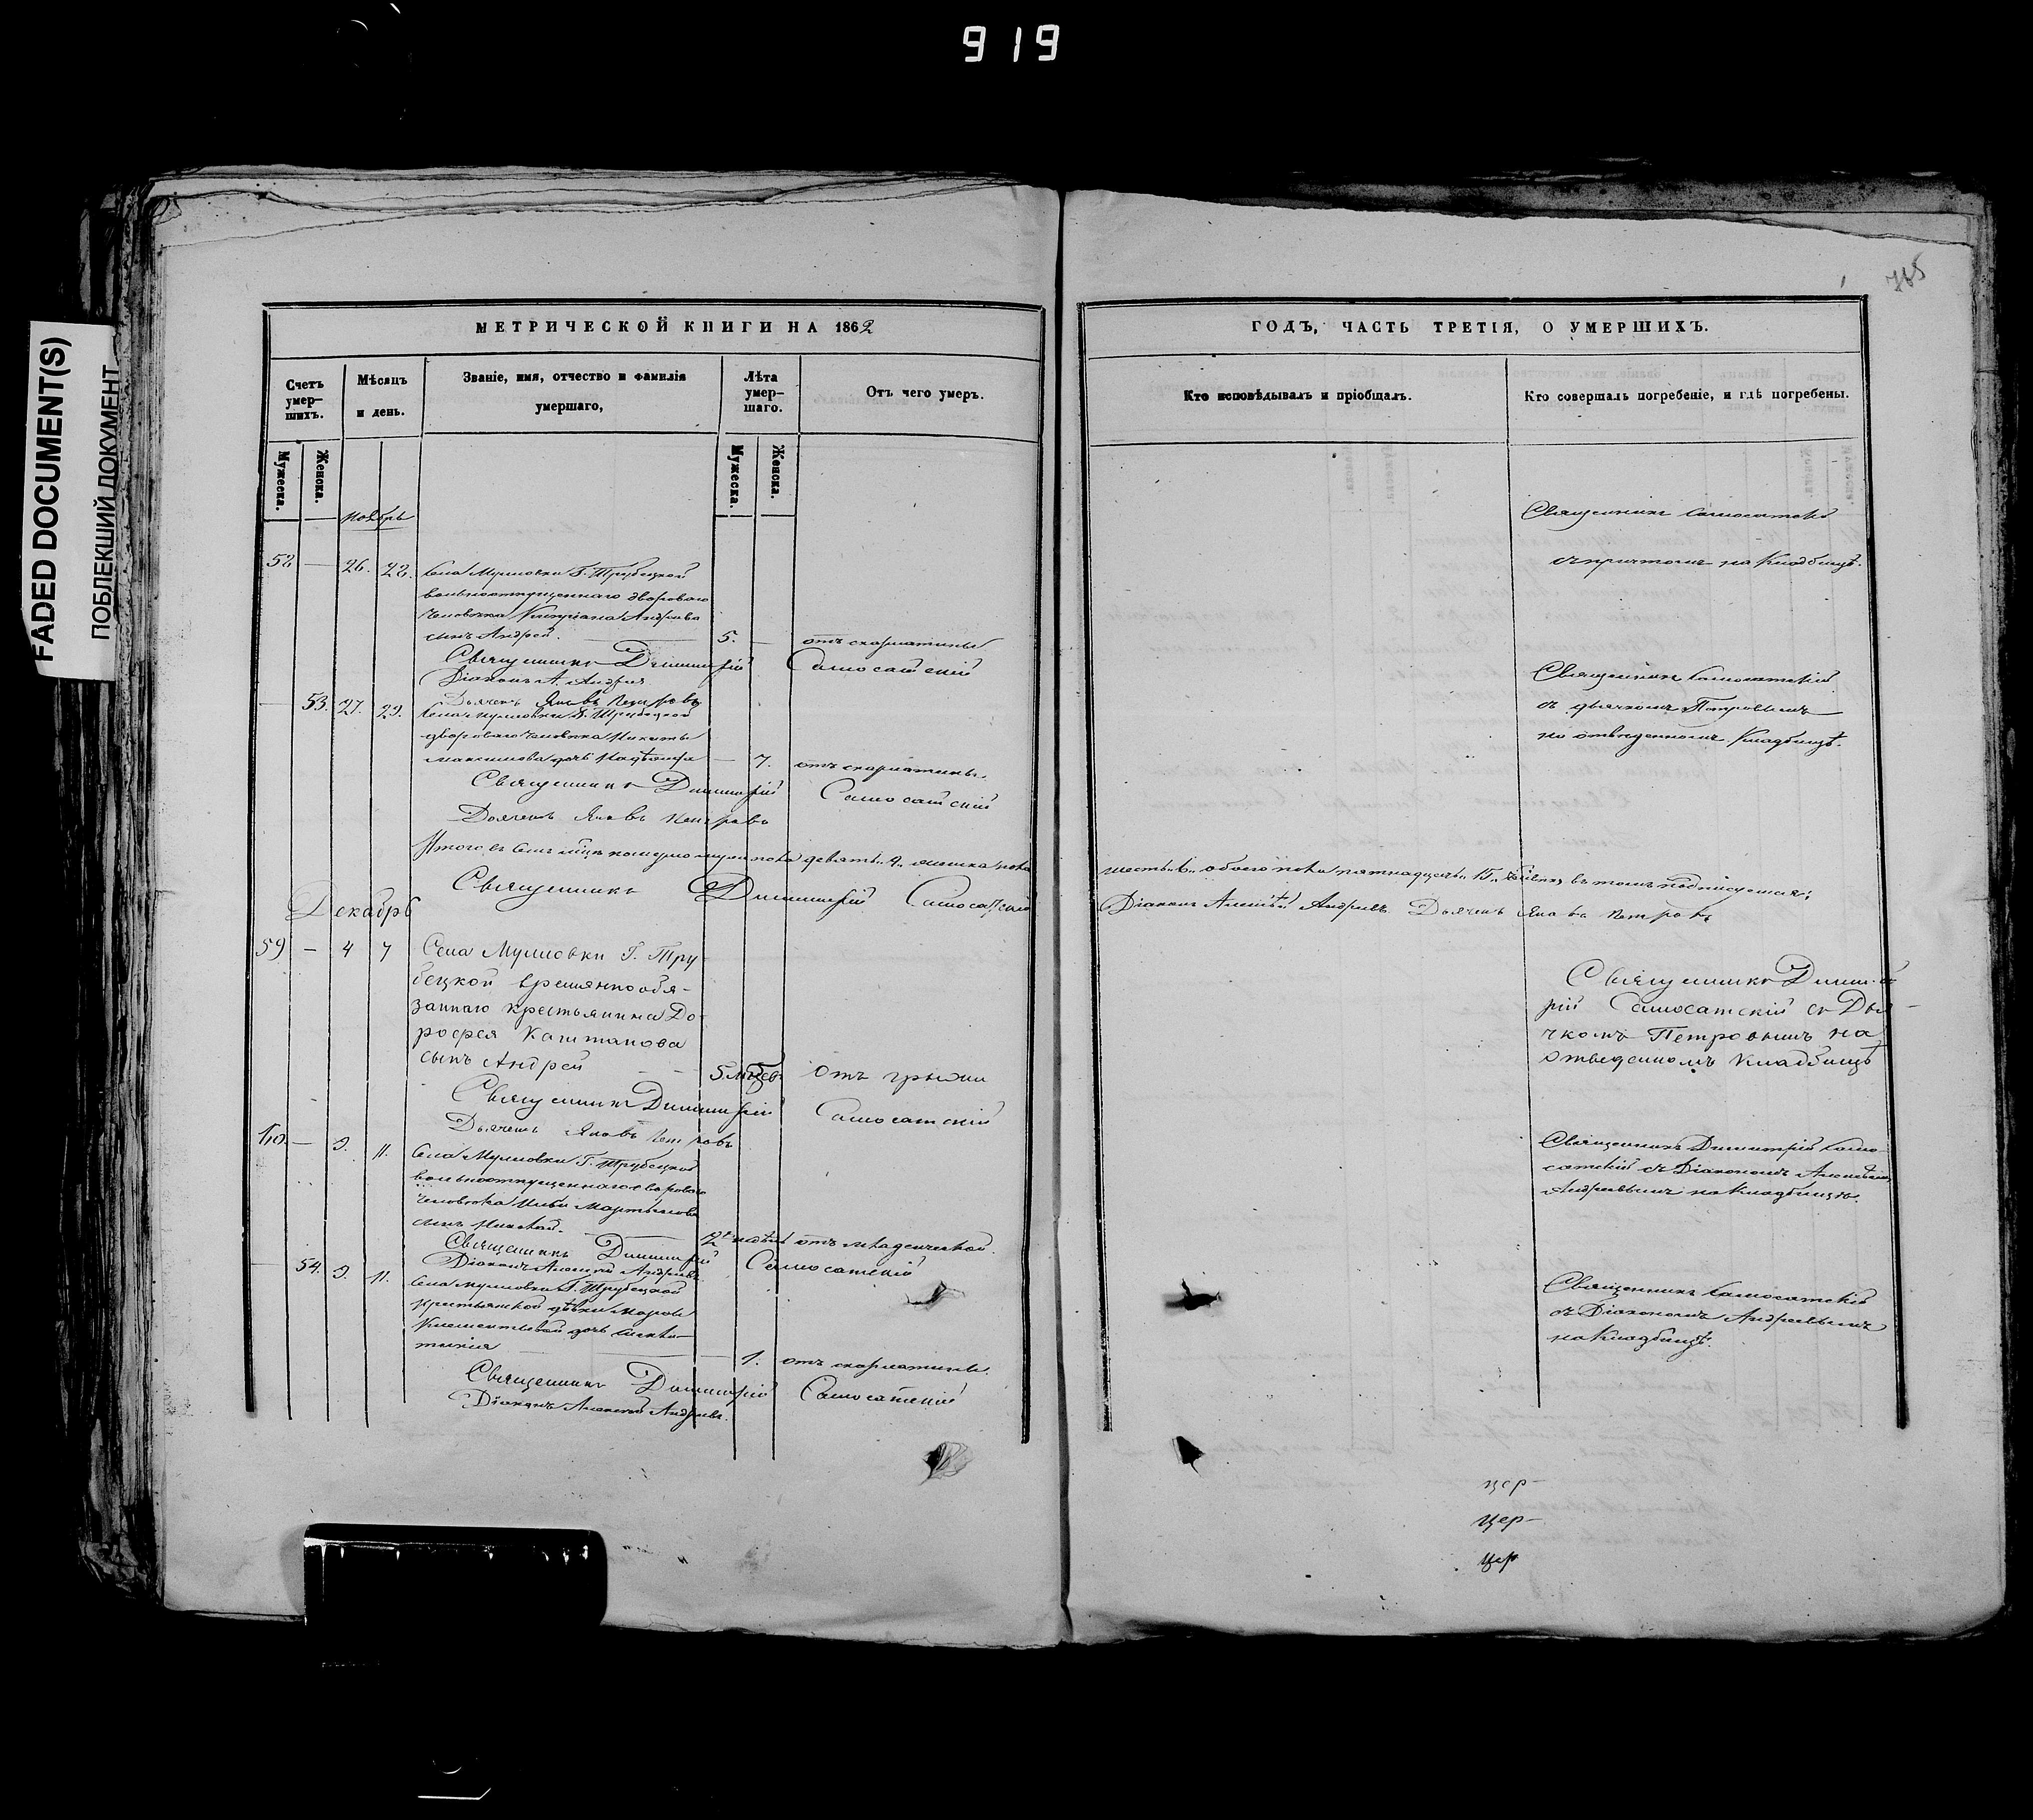 919
FADED DOCUMENT(S)
ПОБЛЕКШИЙ ДОКУМЕНТ
МЕТРИЧЕСКОЙ КНИГИ НА 1862
Счетъ умер-
шихъ.
Мѣсяцъ
и день.
Званіе, имя, отчество и фамилія
умершаго,
Лѣта
умер-
шаго.
Отъ чего умеръ.
Мужеска.
Женска.
Мужеска.
Женска.
Ноябрь
58 — 26. 28. Села Мулловки Г. Трубецкой
вольноотпущеннаго двороваго
человѣка Андреева
сынъ Андрей. 5. — отъ скарлатины
Священникъ Димитрій Самосатскій
Діаконъ А. Андреев
Дьячекъ Яковъ Петровъ
— 53. 27. 29. Села Мулловки Г. Трубецкой
двороваго человѣка Никиты
Максимова дочь — 7. отъ скарлатины.
Священникъ Димитрій Самосатскій
Дьячекъ Яковъ Петровъ
Итого въ семъ мужеска пола девять 9, женска пола
Священникъ Димитрій Самосатскій
Декабрь
59 — 4 7 Села Мулловки Г. Тру
бецкой временнообя-
заннаго крестьянина До-
рофея Каштанова
сынъ Андрей 5 мѣсяц. Отъ грыжи
Священникъ Димитрій Самосатскій
Дьячекъ Яковъ Петровъ
60. — 9. 11. Села Мулловки Г. Трубецкой
вольноотпущеннаго двороваго
человѣка Ильи Мартынова
сынъ Николай. 2 недѣль отъ младенческой.
Священникъ Димитрій Самосатскій
Діаконъ Алексѣй Андреевъ
— 54. 9. 11. Села Мулловки Г. Трубецкой
крестьянской дѣвки
Климентьевой дочь
— 1. отъ скарлатины.
Священникъ Димитрій Самосатскій
Діаконъ Алексѣй Андреевъ.
765
ГОДЪ, ЧАСТЬ ТРЕТІЯ, О УМЕРШИХЪ.
Кто исповѣдывалъ и пріобщалъ.
Кто совершалъ погребеніе, и гдѣ погребены.
Священникъ Самосатскій
съ причтомъ на Кладбищѣ.
Священникъ Самосатскій
съ дьячкомъ Петровымъ
на отведенномъ Кладбищѣ.
шесть 6. обоего пола пятнадцать 15. въ томъ подписуемся:
Діаконъ Алексѣй Андреевъ Дьячекъ Яковъ Петровъ
Священникъ Димит-
рій Самосатскій съ Дья-
чкомъ Петровымъ на
отведенномъ Кладбищѣ
Священникъ Димитрій Само-
сатскій съ Діакономъ Алексѣемъ
Андреевымъ на Кладбищѣ.
Священникъ Самосатскій
съ Діакономъ Андреевымъ
на Кладбищѣ.
цер-
цер-
цер